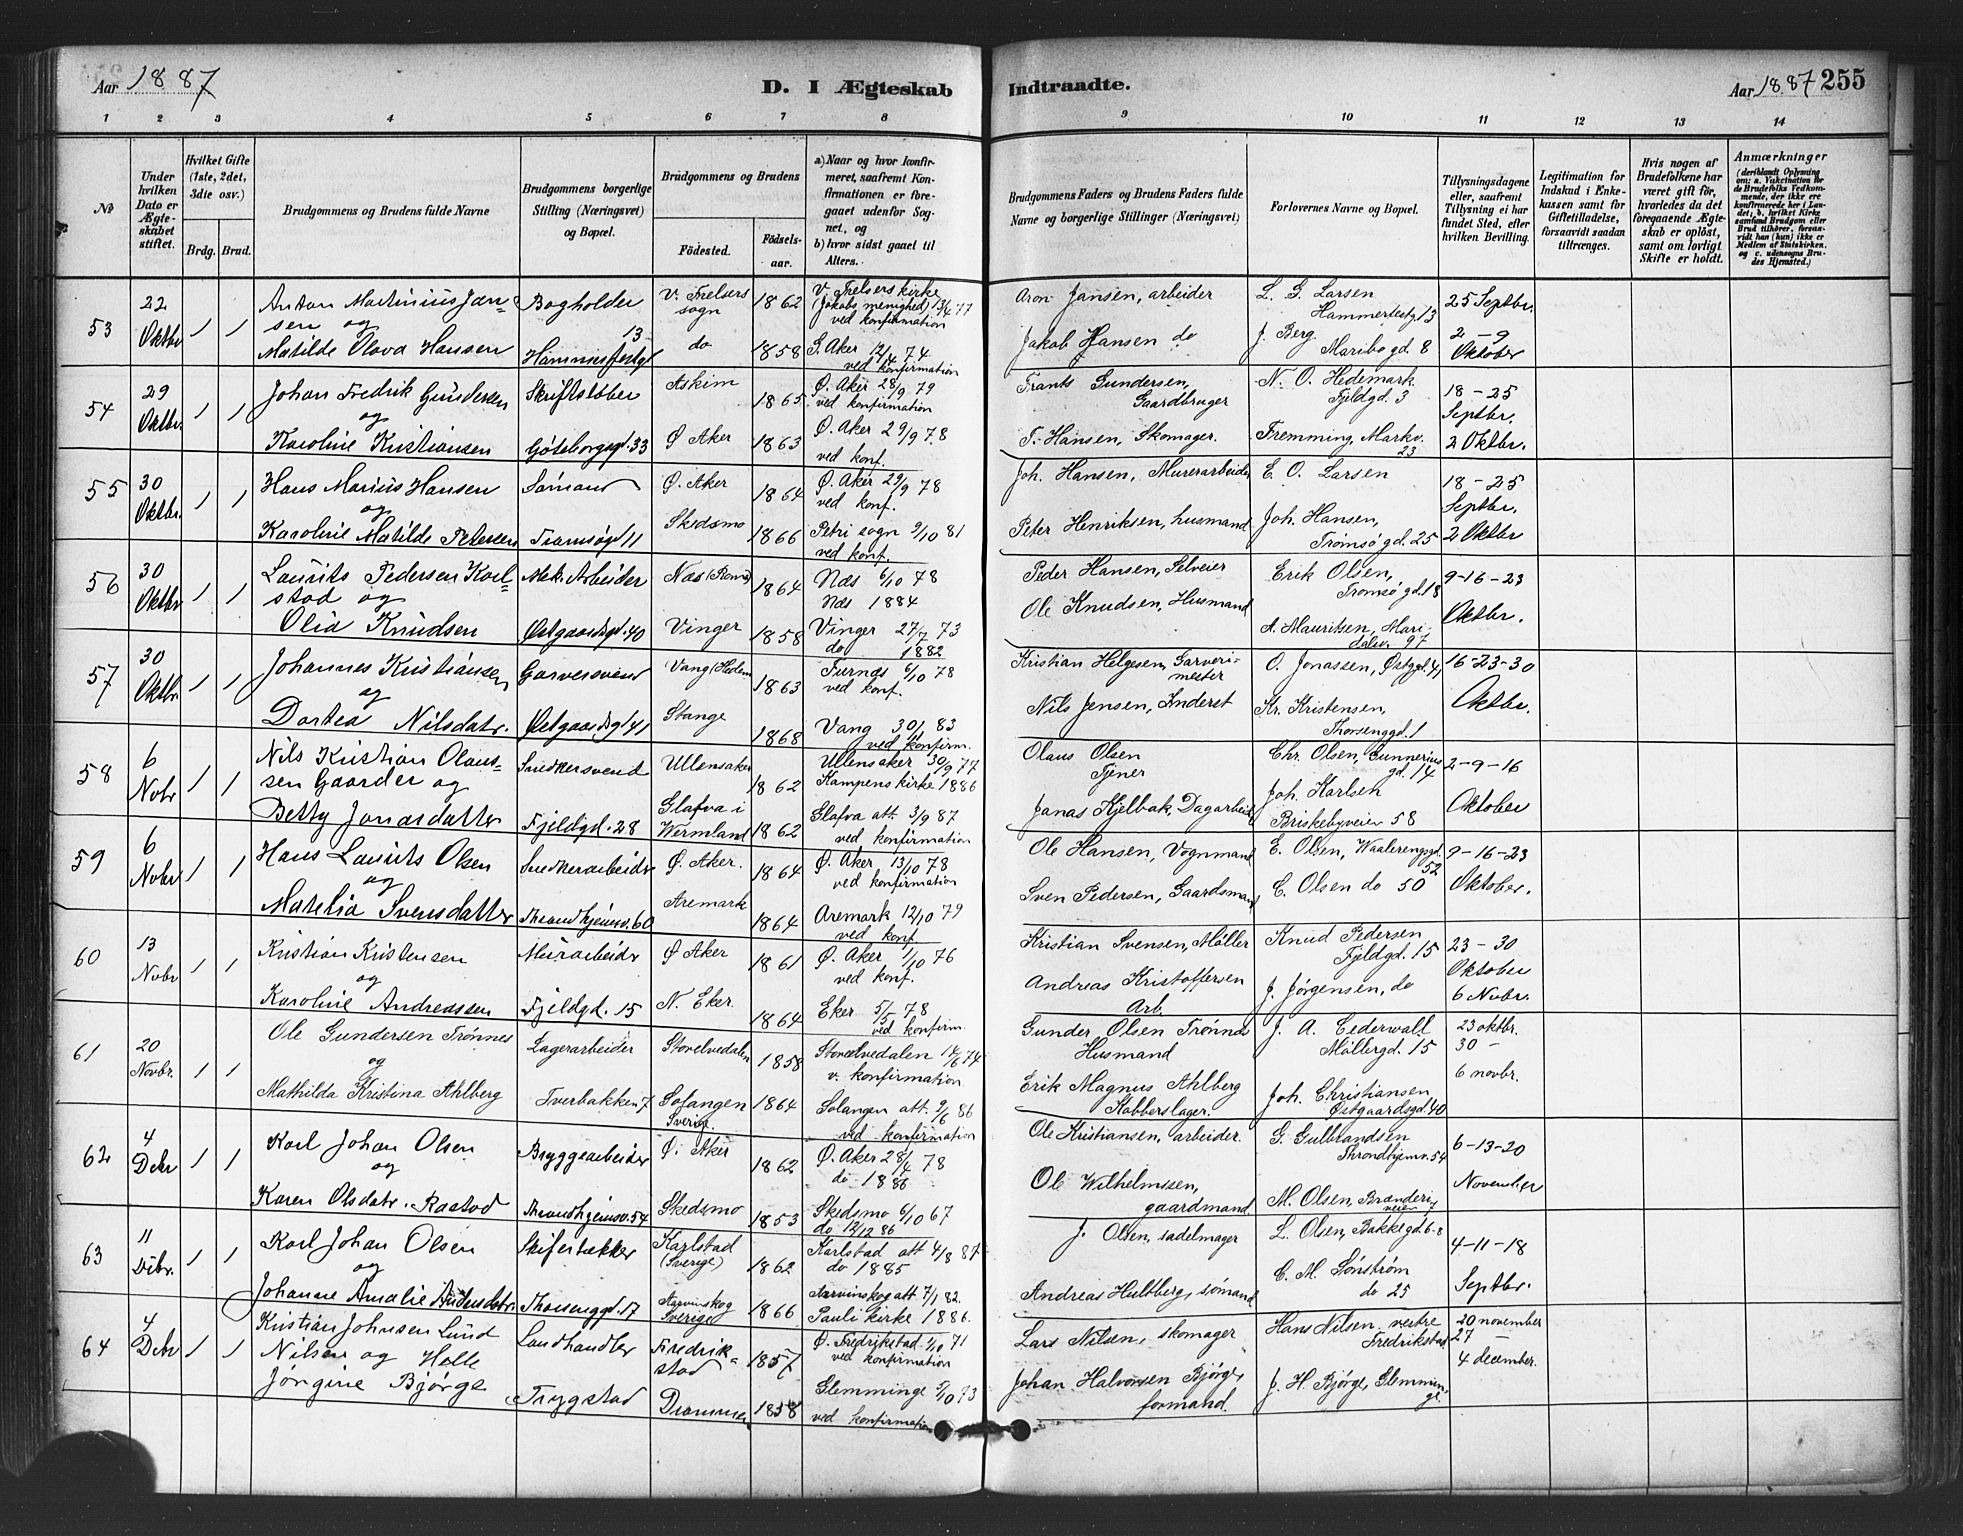 Aar 1887
D. I Ægteskab Indtraadte.
Aar 1887 255
1 2 3 4 5 6 7 8 9 10 11 12 13 14
№
Under hvilken Dato er Ægteskabet stiftet.
Hvilket Gifte (1ste, 2det, 3die osv.)
Brdg. Brud.
Brudgommens og Brudens fulde Navne
Brudgommens borgerlige Stilling (Næringsvei) og Bopæl.
Brudgommens og Brudens
Fødested.
Fødselsaar.
a) Naar og hvor konfirmeret, saafremt Konfirmationen er foregaaet udenfor Sognet, og
b) hvor sidst gaaet til Alters.
Brudgommens Faders og Brudens Faders fulde Navne og borgerlige Stillinger (Næringsvei)
Forlovernes Navne og Bopæl.
Tillysningsdagene eller, saafremt Tillysning ei har fundet Sted, efter hvilken Bevilling.
Legitimation for Indskud i Enkekassen samt for Giftetilladelse, forsaavidt saadan tiltrænges.
Hvis nogen af Brudefolkene har været gift før, hvorledes da det foregaaende Ægteskab er opløst, samt om lovligt Skifte er holdt.
Anmærkninger (deriblandt Oplysning om: a. Vakcination for de Brudefolks Vedkommende, der ikke ere konfirmerede her i Landet; b. hvilket Kirkesamfund Brudgom eller Brud tilhører, forsaavidt han (hun) ikke er Medlem af Statskirken, og c. udensogns Brudes Hjemsted.)
53 22 Oktbr 1 1
Anton Martinius Jansen og
Matilde Olava Hansen
Bogholder
13
V. Frelsers sogn 1862
do 1858
V. Frelsers kirke (Jakobs menighed) 13/4 77
ved konfirmation
G. Aker 12/4 74
ved konfirmation
Aron Jansen, arbeider
Jakob Hansen do
L. G. Larsen
Hammerfestg. 13
J. Berg
Maribogd. 8
25 Septbr.
2 - 9
Oktober
54 29 Oktbr. 1 1
Johan Fredrik Gundersen
og
Karoline Kristiansen
Skriftstøber
Göteborgsgd. 33
Askim 1865
Ø Aker 1863
Ø. Aker 28/9 79
ved konfirmation
Ø. Aker 29/9 78
ved konf.
Frants Gundersen,
Gaardbruger
T. Hansen, Skomager.
N. O. Hedemark
Fjeldgd. 3
Fremming, Markv. 23
18 - 25
Septbr.
2 Oktbr.
55 30 Oktbr. 1 1
Hans Marius Hansen
og
Karoline Matilde Petersen
Sømand
Tromsøgd 11
Ø. Aker 1864
Skedsmo 1866
Ø. Aker 29/9 78
ved konf.
Petri sogn 9/10 81
ved konf.
Joh. Hansen, Murerarbeider
Peter Henriksen, husmand
E. O. Larsen
Joh. Hansen,
Tromsøgd. 25
18 - 25
Septbr.
2 Oktbr
56 30 Oktbr 1 1
Laurits Pedersen Korlstad og
Olia Knudsen
Mek. Arbeider
Østgaardsgd. 40
Næs (Rom.) 1864
Vinger 1858
Næs 6/10 78
Næs 1884
Vinger 27/7 73
do 1882
Peder Hansen, Selveier
Ole Knudsen, Husmand
Erik Olsen,
Tromsøgd. 18
A. Mauritsen, Maridalsv. 97
9-16-23
Oktbr.
57 30 Oktbr. 1 1
Johannes Kristiansen
og
Dortea Nilsdatr.
Garversvend
Østgaardsgd 41
Vang (Hedem. 1863
Stange 1868
Furnæs 6/10 78
ved konf.
Vang 30/9 83
ved konfirm.
Kristian Helgesen, Garverimester
Nils Jensen, Inderst
O. Jonassen, Østgd. 41
Kr. Kristensen,
Thorsenggd. 1
16-23-30
Oktbr.
58 6 Nobr 1 1
Nils Kristian Olaussen Gaarder og
Betty Jonasdatter
Snedkersvend
Fjeldgd. 28
Ullensaker 1862
Glafva i Wermland 1862
Ullensaker 30/9 77
Kampens kirke 1886
Glafva att. 3/9 87
ved konfirmation
Olaus Olsen
Tjener
Jonas Kjelbak, Dagarbeid.
Chr. Olsen, Gunneriusgd. 14
Joh. Karlsen
Briskebyveien 58
2-9-16
Oktober
59 6 Nobr 1 1
Hans Laurits Olsen
og
Matelia Svensdatter
Snedkerarbeider
Throndhjemsv. 60
Ø. Aker. 1864
Aremark 1864
Ø. Aker 13/10 78
ved konfirmation
Aremark 12/10 79
ved konf.
Ole Hansen, Vognmand
Sven Pedersen, Gaardsmand
E. Olsen, Waalerenggd. 52
C. Olsen do 50
9-16-23
Oktober.
60 13 Nobr 1 1
Kristian Kristensen
og
Karoline Andreassen
Murarbeider
Fjeldgd. 15
Ø Aker 1861
N. Eker. 1864
Ø. Aker 1/10 76
ved konf.
Eker 5/5 78
ved konfirm.
Kristian Svensen, Møller
Andreas Kristoffersen
Arb.
Knud Pedersen
Fjeldgd. 15
J. Jørgensen, do
23 - 30
Oktober
6 Nobr.
61 20 Novbr. 1 1
Ole Gundersen Trønnes
og
Mathilda Kristina Ahlberg
Lagerarbeider
Tverbakken 7
Storelvedalen 1858
Solangen Sverige. 1864
Storelvedalen 14/6 74
v. konfirmation
Solangen att. 9/6 86
ved konfirmation
Gunder Olsen Trønnes
Husmand
Erik Magnus Ahlberg
Kobberslager.
J. A. Cederwall
Møllergd. 15
Joh. Christiansen
Østgaardsgd. 40
23 oktbr.
30 -
6 novbr.
62 4 Debr 1 1
Karl Johan Olsen
og
Karen Olsdatr. Rastad
Bryggearbeider
Throndhjemsv. 54
Ø. Aker 1862
Skedsmo 1853
Ø. Aker 28/4 78
do 1886
Skedsmo 6/10 67
do 12/12 86
Ole Kristiansen, arbeider.
Ole Wilhelmssen,
gaardmand.
G. Gulbrandsen
Throndhjemv. 54
M. Olsen, Brænderiveien 7
6-13-20
November
63 11 Debr. 1 1
Karl Johan Olsen
og
Johanne Amalie Andersdatr.
Skifertækker
Thorsenggd. 17
Karlstad (Sverige) 1862
Aarvinskog Sverige 1866
Karlstad att 4/8 87
do 1885
Aarvinskog att 7/1 82.
Pauli kirke 1886.
J. Olsen, sadelmager
Andreas Hultberg, sømand
L. Olsen, Bakkegd. 6-8
C. M. Sønstrøm
do 25
4-11-18
Septbr.
64 4 Debr 1 1
Kristian Johnsen Lund
Nilsen og Helle
Jørgine Bjørge
Landhandler
Trygstad
Fredrikstad 1857
Drammen 1858
Ø. Fredrikstad 1/10 71
ved konfirmation
Glemminge 5/10 73
ved konfirmation
Lars Nilsen, skomager
Johan Halvorsen Bjørge,
formand.
Hans Nilsen vestre
Fredrikstad
J. H. Bjørge, Glemminge.
20 november
27 -
4 december.